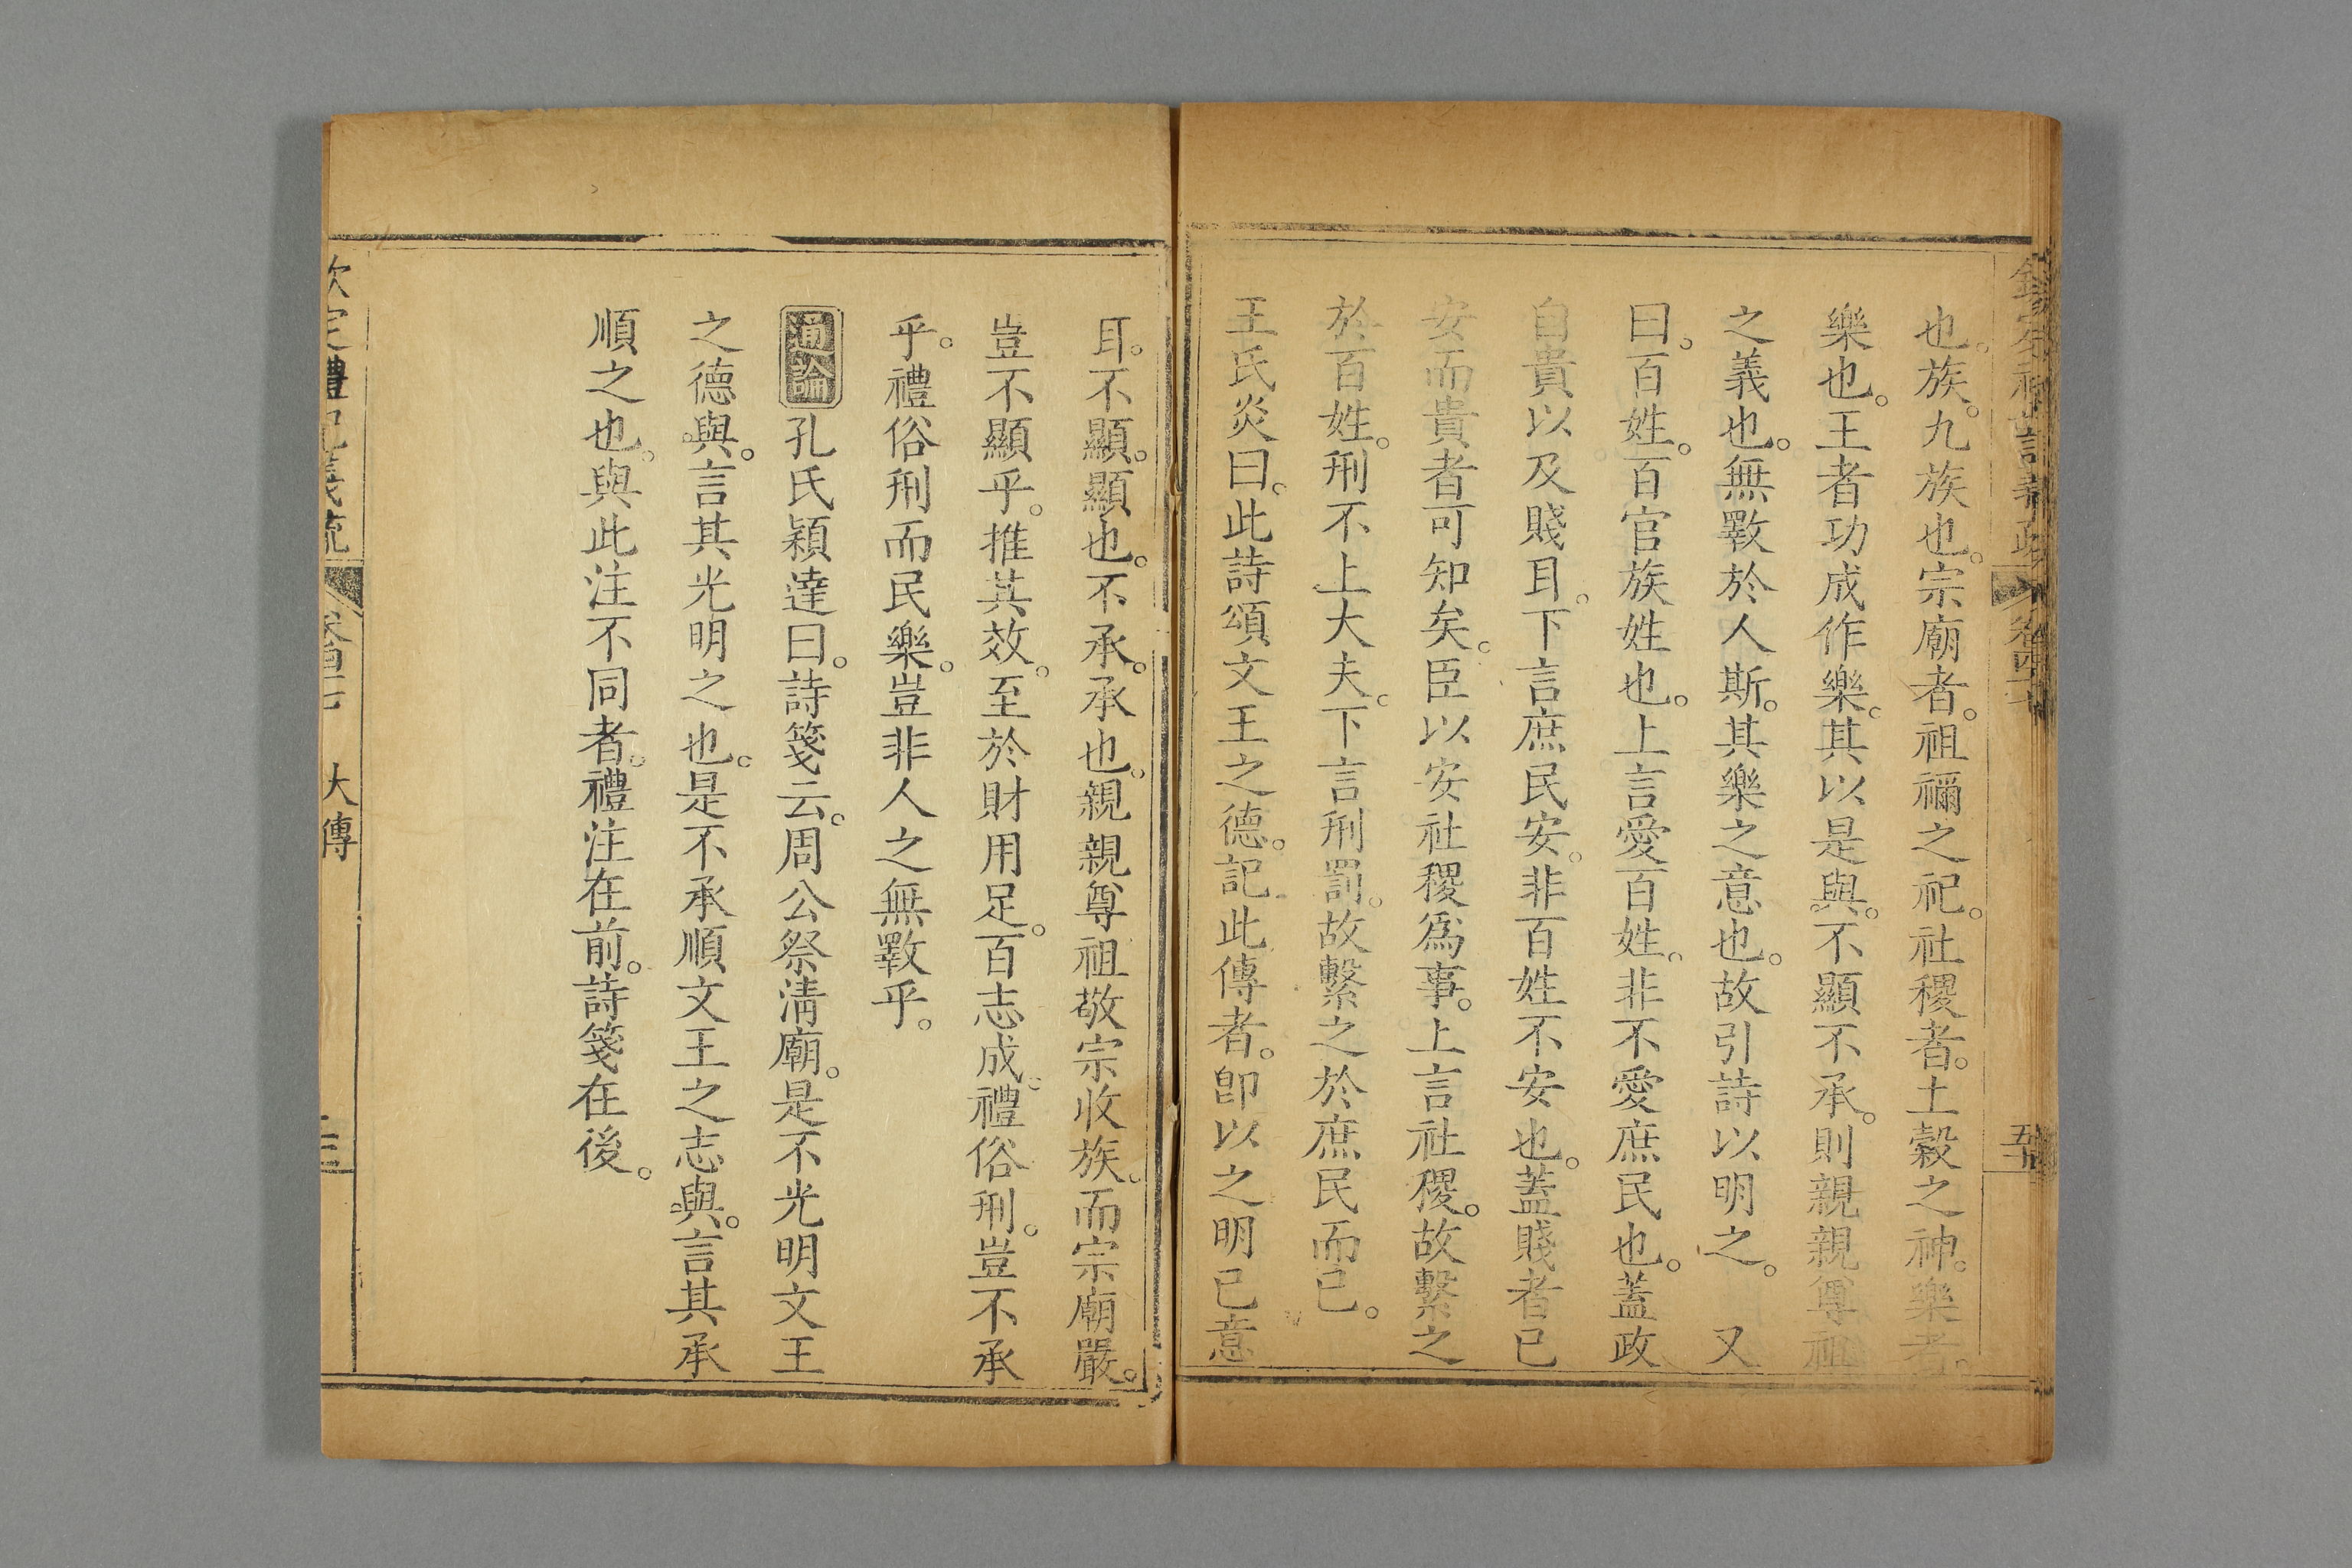 也。族。九族也。宗廟者。祖禰之祀。社稷者。土穀之神。樂者。
樂也。王者功成作樂。其以是與。不顯不承。則親親尊祖
之義也。無斁於人斯。其樂之意也。故引詩以明之。 又
曰。百姓。百官族姓也。上言愛百姓。非不愛庶民也。蓋政
自貴以及賤耳。下言庶民安。非百姓不安也。蓋賤者已
安而貴者可知矣。臣以安社稷爲事。上言社稷。故繫之
於百姓。刑不上大夫。下言刑罰。故繫之於庶民而已。
王氏炎曰。此詩頌文王之德。記此傳者。卽以之明已意
耳。不顯。顯也。不承。承也。親親尊祖敬宗收族。而宗廟嚴。
豈不顯乎。推其效。至於財用足。百志成。禮俗刑。豈不承
乎。禮俗刑而民樂。豈非人之無斁乎。
通論孔氏穎達曰。詩箋云。周公祭淸廟。是不光明文王
之德與。言其光明之也。是不承順文王之志與。言其承
順之也。與此注不同者。禮注在前。詩箋在後。
大傳